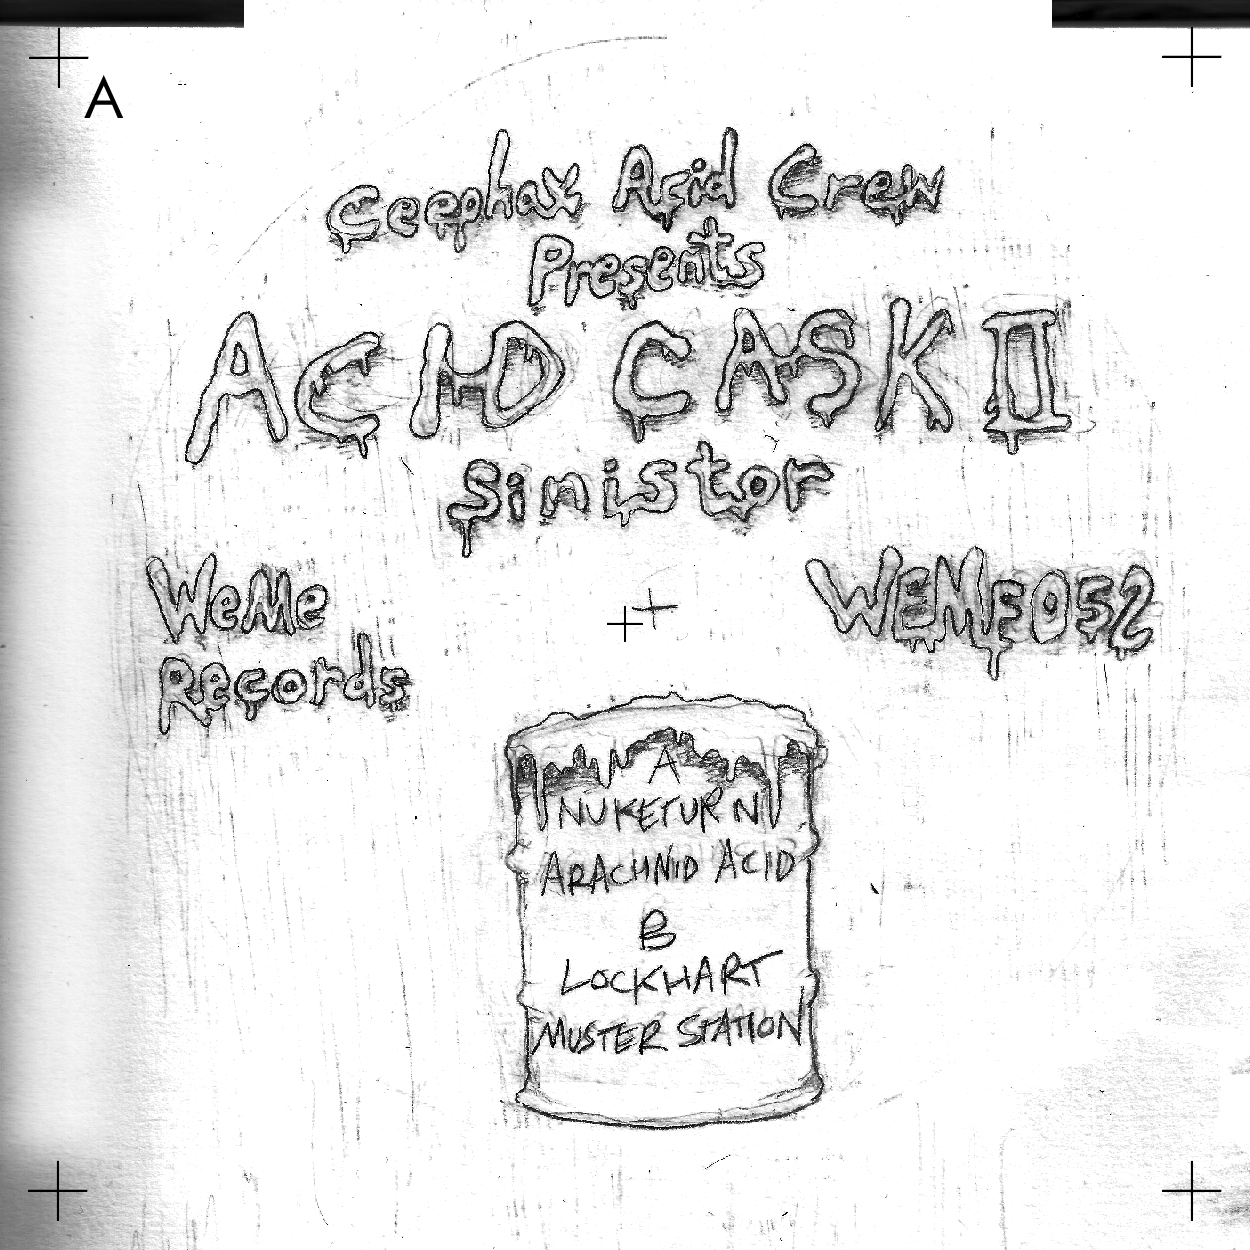 A
Ceephax Acid Crew
Presents
ACID CASK II
sinistor
WeMe
Records
WEME052
A
NUKETURN
ARACHNID ACID
B
LOCKHART
MUSTER STATION